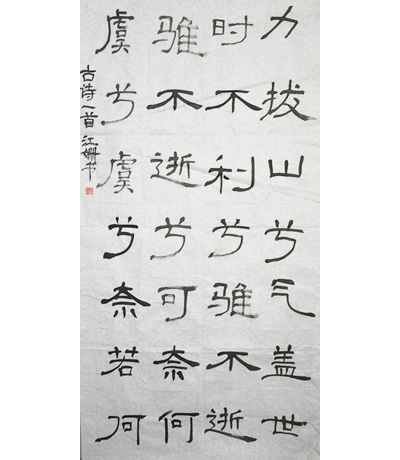 力拔山兮气盖世
时不利兮骓不逝
骓不逝兮可奈何
虞兮虞兮奈若何
古诗一首江姗书